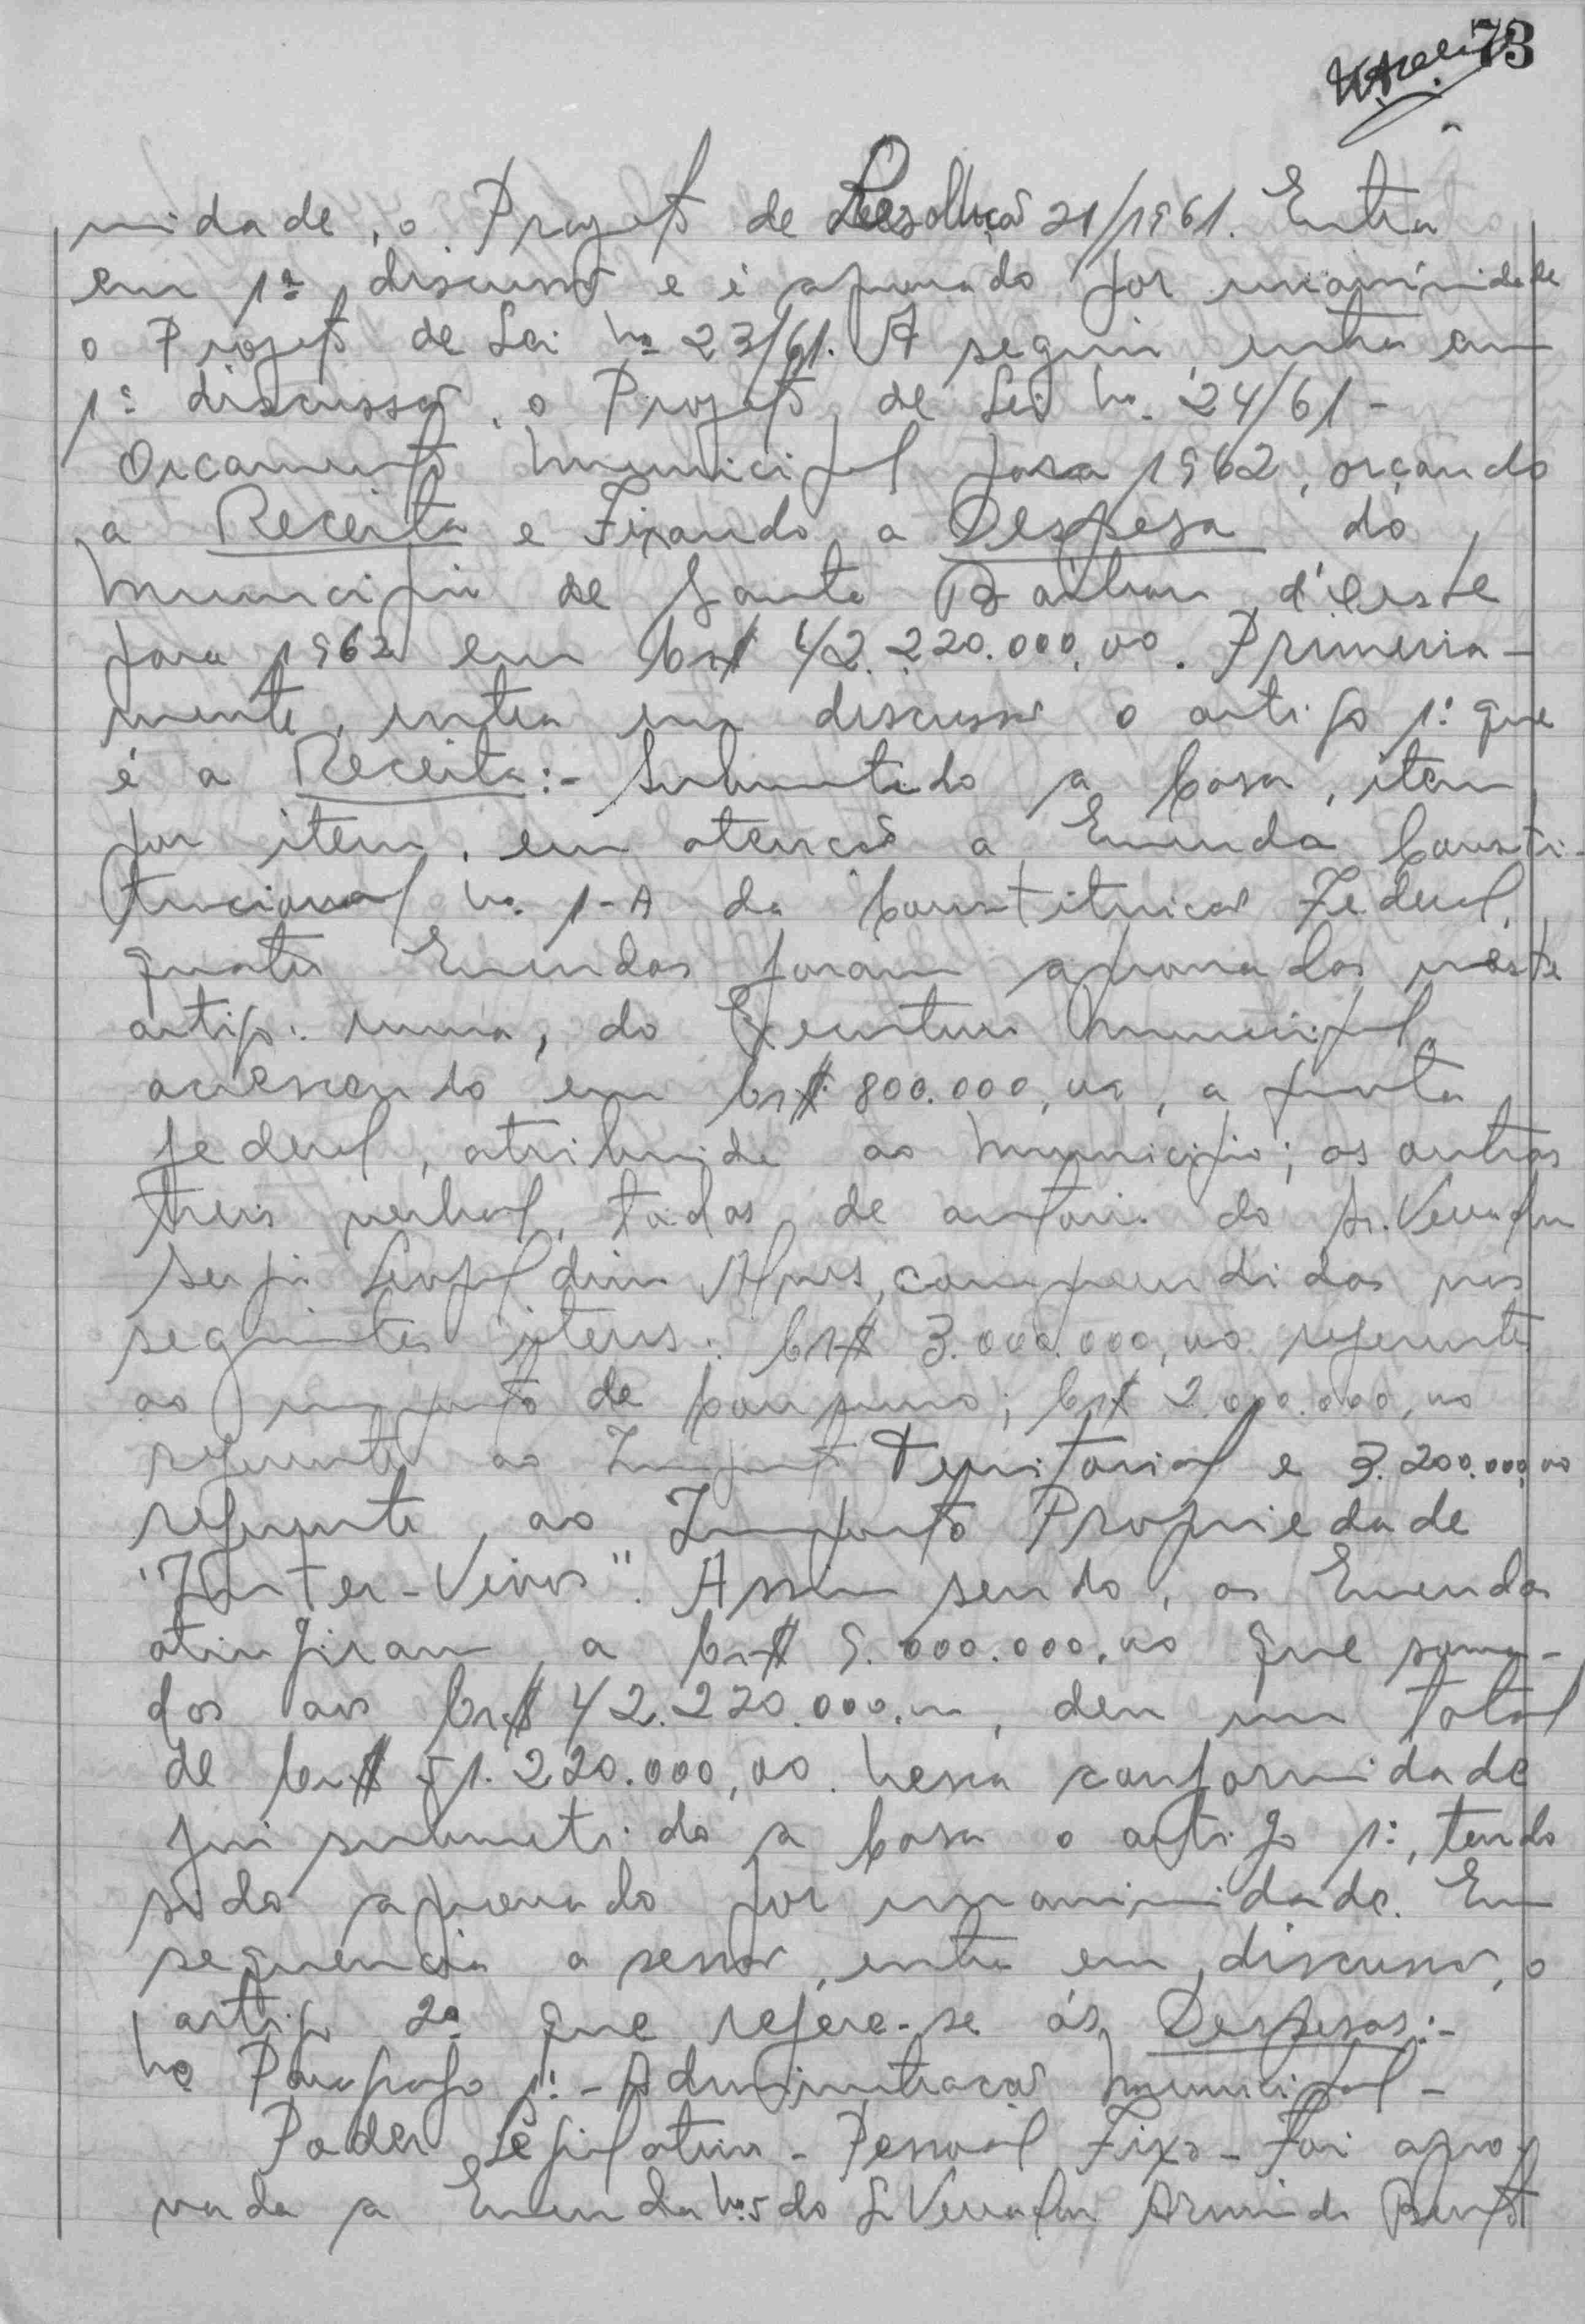 73
nidade, o Projeto de Resolução 21/1961. Entra
em 1ª discussão e é aprovado por unanimidade
o Projeto de Lei nº 23/61. A seguir, entra em
1ª discussão, o Projeto de Lei nº 24/61 -
Orcamento Municipal para 1962, orçando
a Receita e Fixando a Despesa do
Municipio de Santa Barbara d'Oeste
para 1962 em Cr$ 42.220.000,00. Primeira-
mente, entra em discussão o artigo 1º que
é a Receita:- Submetido a Casa, item
por item, em atenção a Emenda Consti-
tucional nº 1-A da Constituição Federal,
quatro Emendas foram aprovadas nêste
artigo: uma, do Executivo Municipal,
acrescendo em Cr$ 800.000,00, a quota
federal, atribuida ao Municipio; as outras
treis verbal, tôdas de autoria do Sr. Vereador
Sergio Leopoldino Alves, compreendidas nos
seguintes itens: Cr$ 3.000.000,00 referente
ao imposto de Consumo; Cr$ 2.000.000,00
referente ao Imposto Territorial e 3.200.000,00
referente, ao Imposto Propriedade
"Inter-Vivos". Assim sendo, as Emendas
atingiram a Cr$ 9.000.000,00 que soma-
dos aos Cr$ 42.220.000,00, deu um total
de Cr$ 51.220.000,00. Nessa conformidade
foi submetido a Casa o artigo 1º, tendo
sido aprovado por unanimidade. Em
sequencia a sessão, entra em discussão, o
artigo 2º que refere-se ás Despesas:-
No Paragrafo 1º - Administração Municipal -
Poder Legislativo - Pessoal Fixo - Foi apro-
vada a Emenda nº 5 do Sr. Vereador Armindo